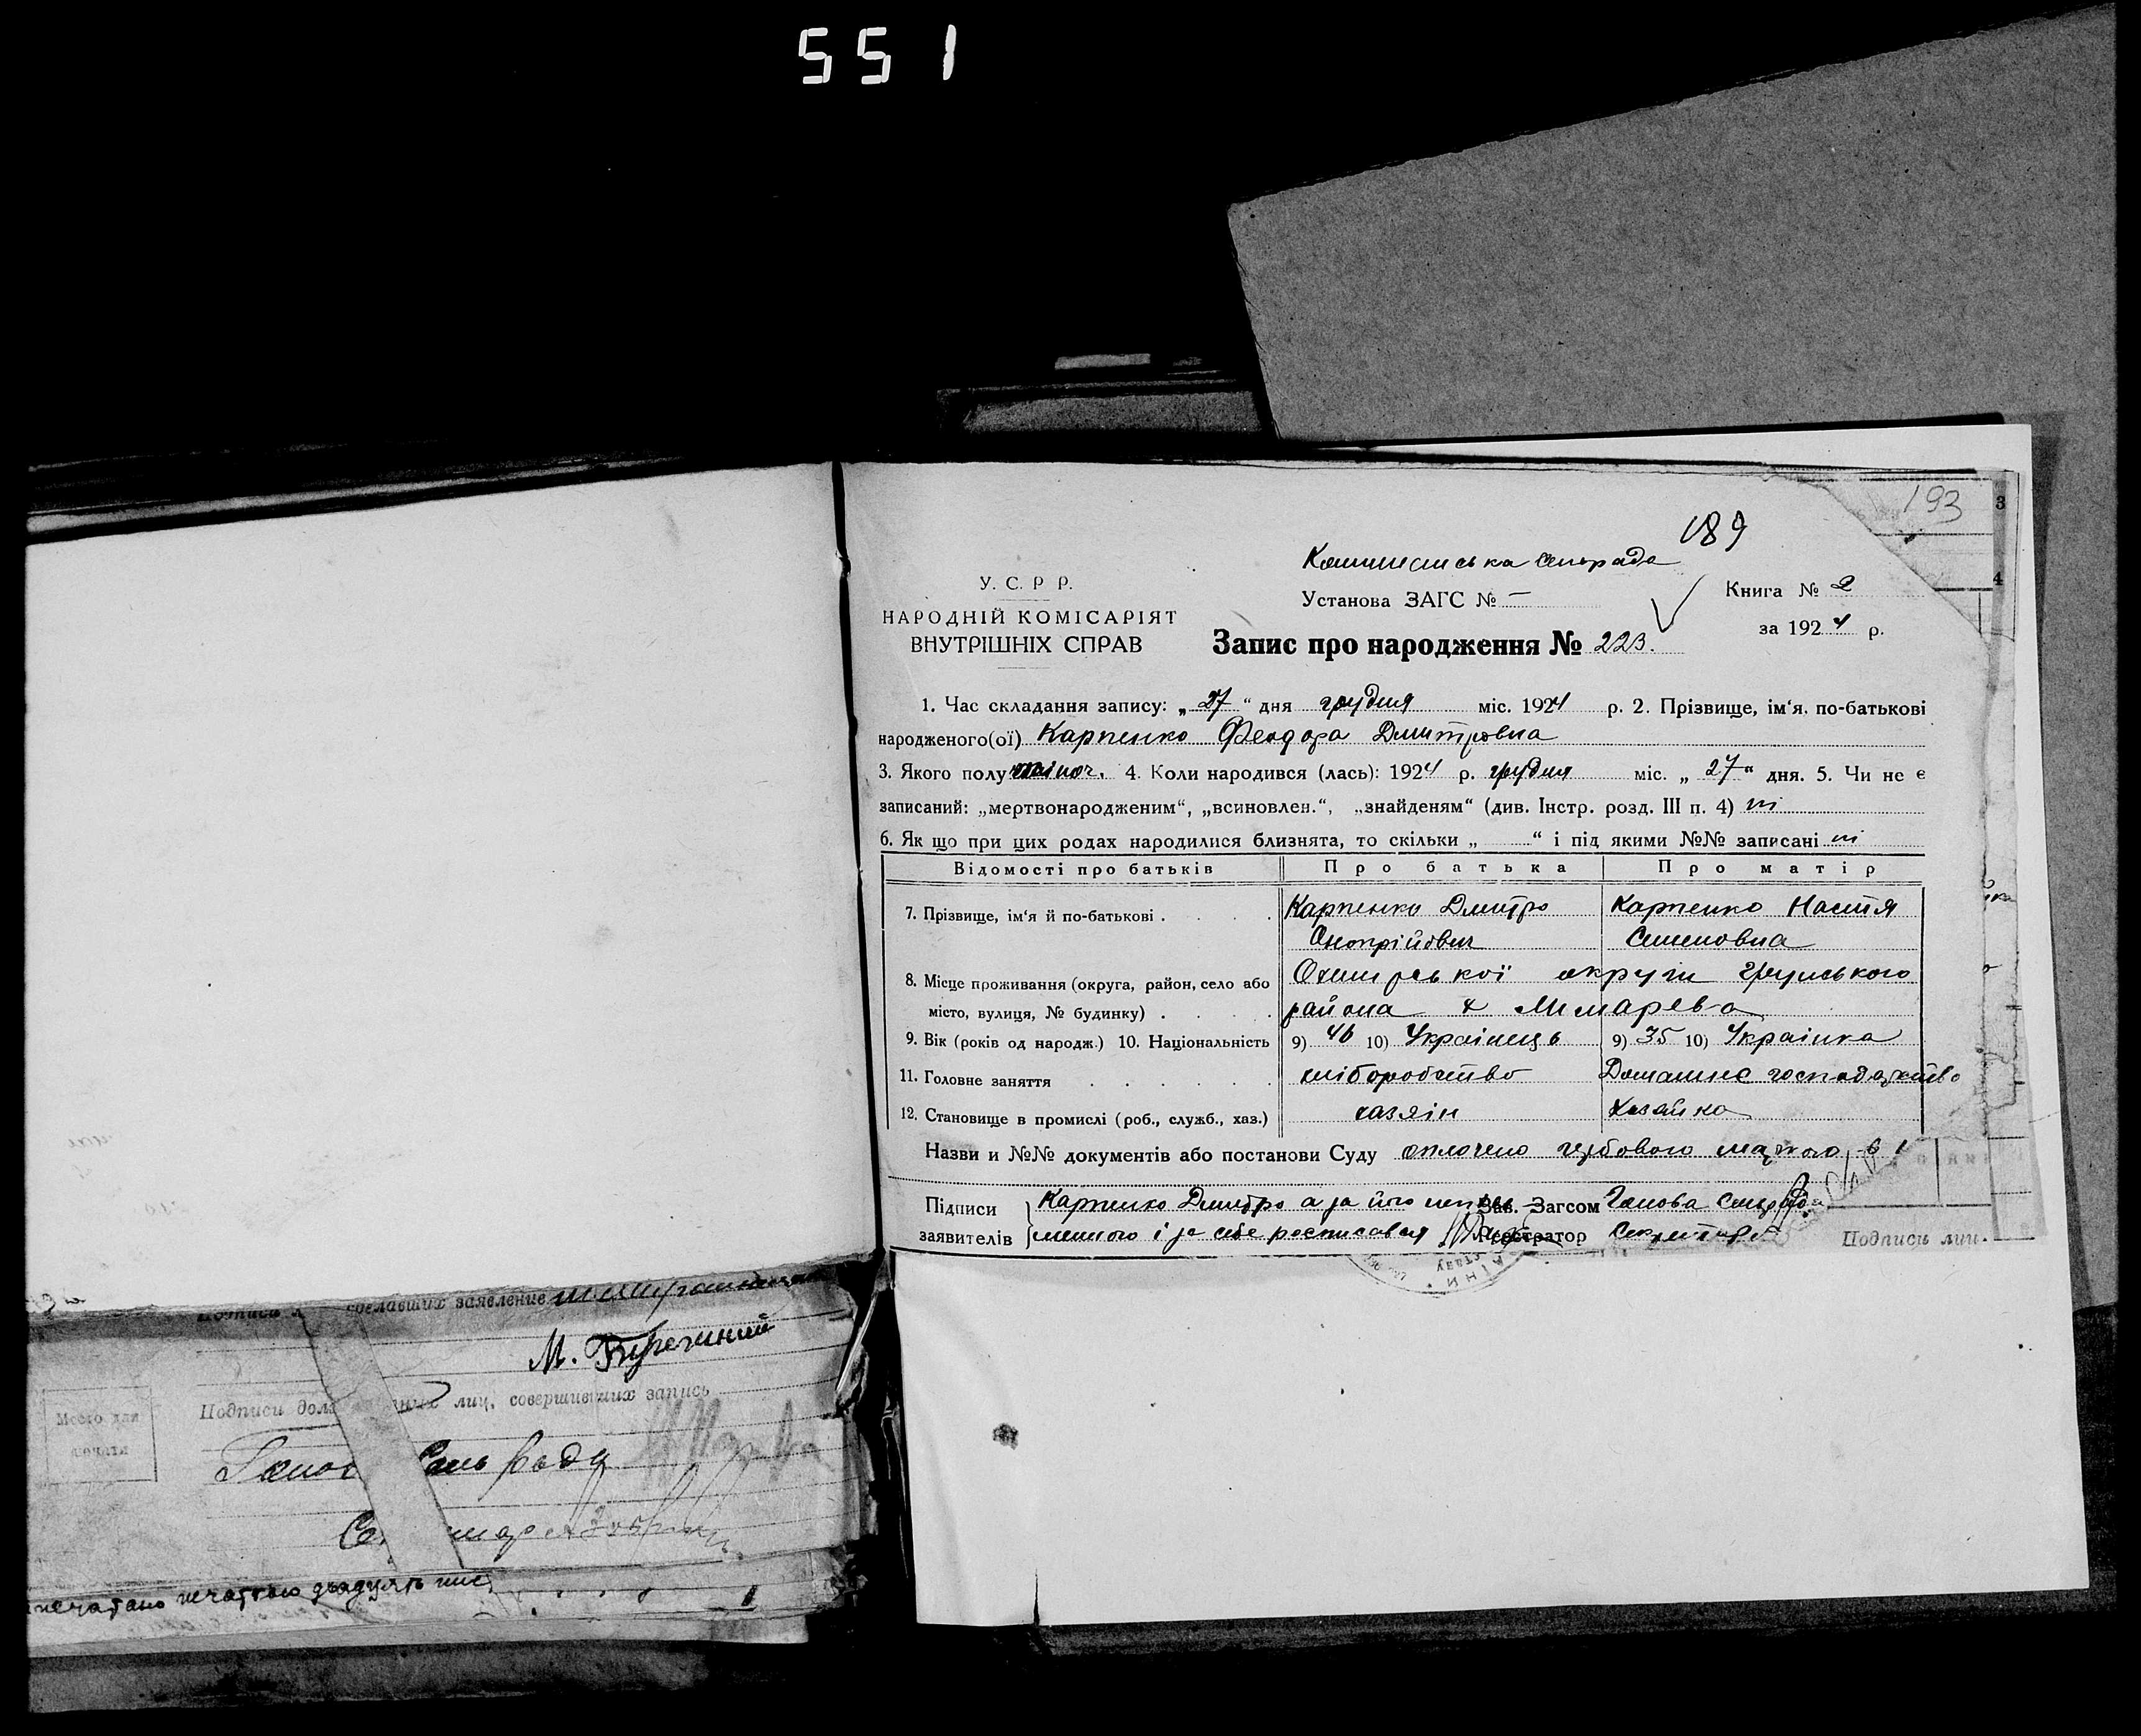 551
193
3
189
сельрада
4
У. С. Р Р.
Установа ЗАГС № —
Книга № 2
НАРОДНІЙ КОМІСАРІЯТ
ВНУТРІШНІХ СПРАВ
за 1924 р.
Запис про народження № 223.
1. Час складання запису: „27“ дня грудня міс. 1924 р. 2. Прізвище, ім‘я, по-батькові
народженого(ої) Карпенко Феодора Дмитровна
3. Якого полу жіноч. 4. Коли народився (лась): 1924 р. грудня міс. „27“ дня. 5. Чи не є
записаний: „мертвонародженим“, „всиновлен.“, „знайденям“ (див. Інстр. розд. III п. 4) ні
6. Як що при цих родах народилися близнята, то скільки „ “ і під якими №№ записані ні
Відомості про батьків Про батька Про матір
7. Прізвище, ім‘я й по-батькові . . . . Карпенко Дмитро Карпенко Настя
Онопрійович Семеновна
8. Місце проживання (округа, район, село або Охтирської округи Грунського
місто, вулиця, № будинку) . . . . района х
9. Вік (років од народж.) 10. Національність 9) 46 10) Українець 9) 35 10) Українка
11. Головне заняття . . . . . . хліборобство Домашнє господарство
12. Становище в промислі (роб., служб., хаз.) хазяін Хазяйка
Назви и №№ документів або постанови Суду оплочено гербового
Підписи Карпенко Дмитро а за його Зав. Загсом Голова сельради
заявителів і за себе росписався Реєстратор Секретарь
Подпись лиц.
сделавших заявление
М.
Подписи лиц, совершивших запись
Место для
печати
Сельради
печатью двадцять